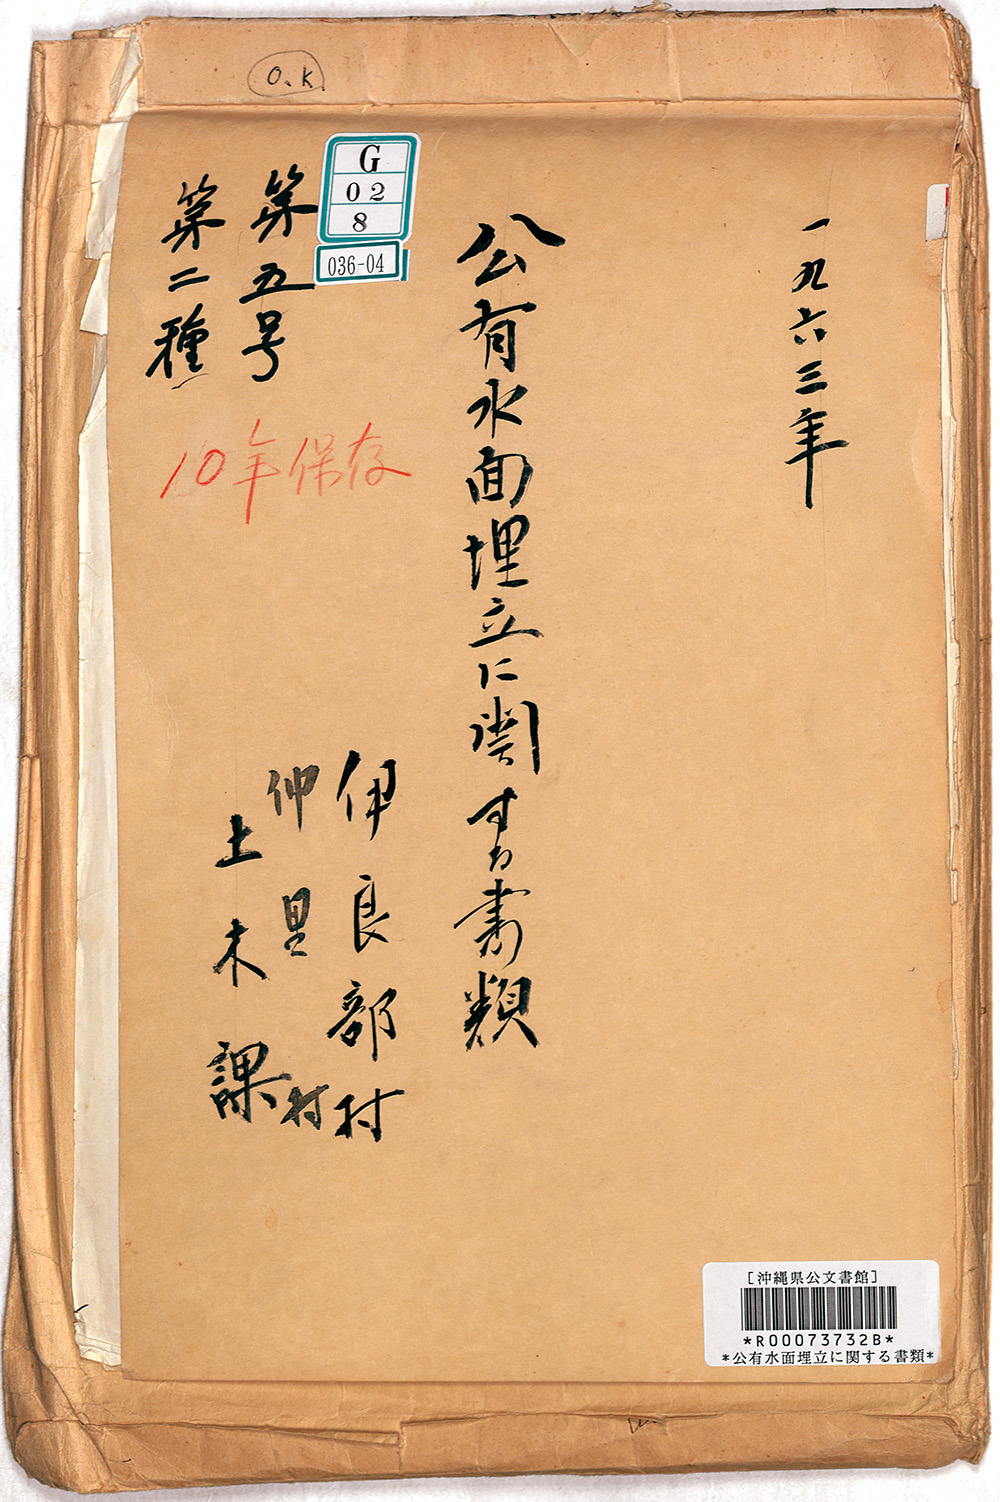 O.K
一九六三年
公有水面埋立に関する書類
第五号
第二種
G
02
8
036-04
10年保存
伊良部村
仲里村
土木課
[沖縄県公文書館]
*R00073732B*
*公有水面埋立に関する書類*